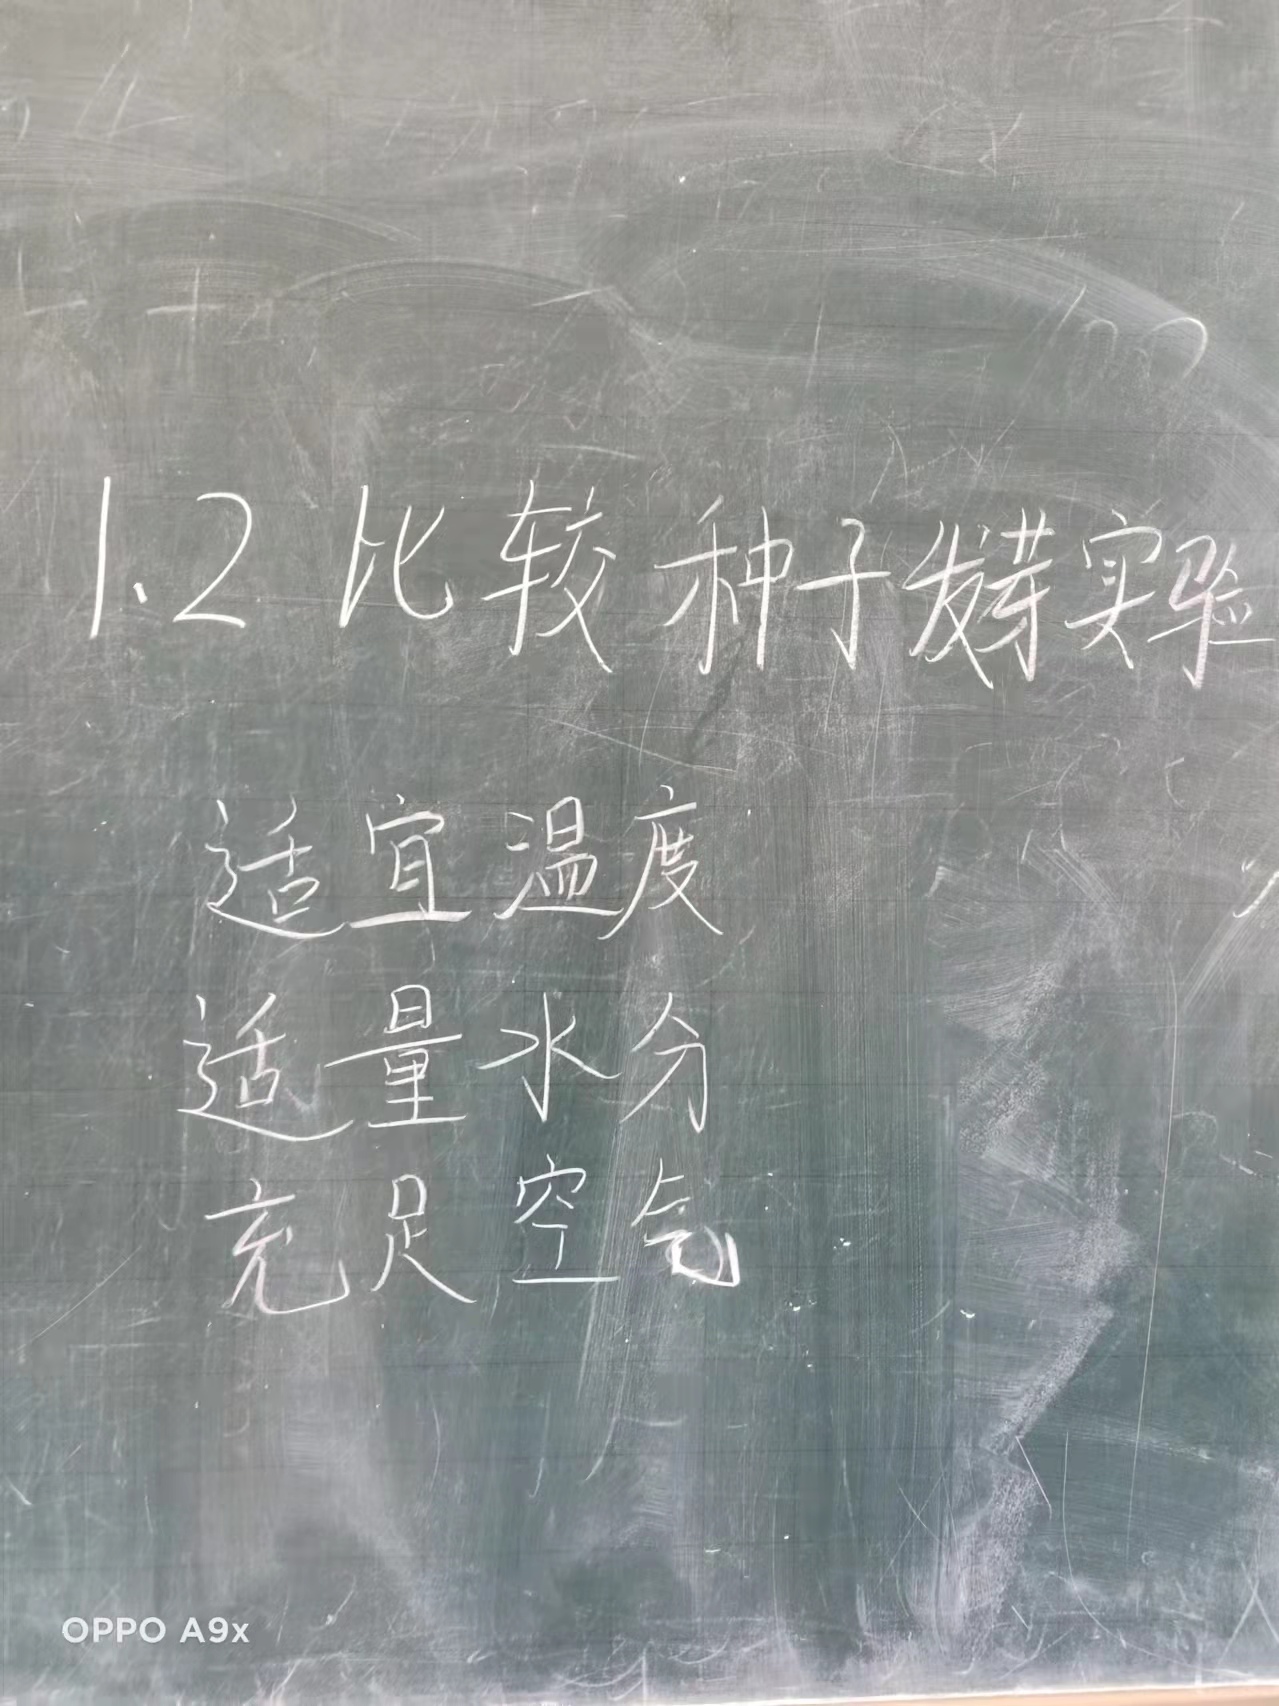 1.2 比较种子发芽实验
适宜温度
适量水分
充足空气
OPPO A9x